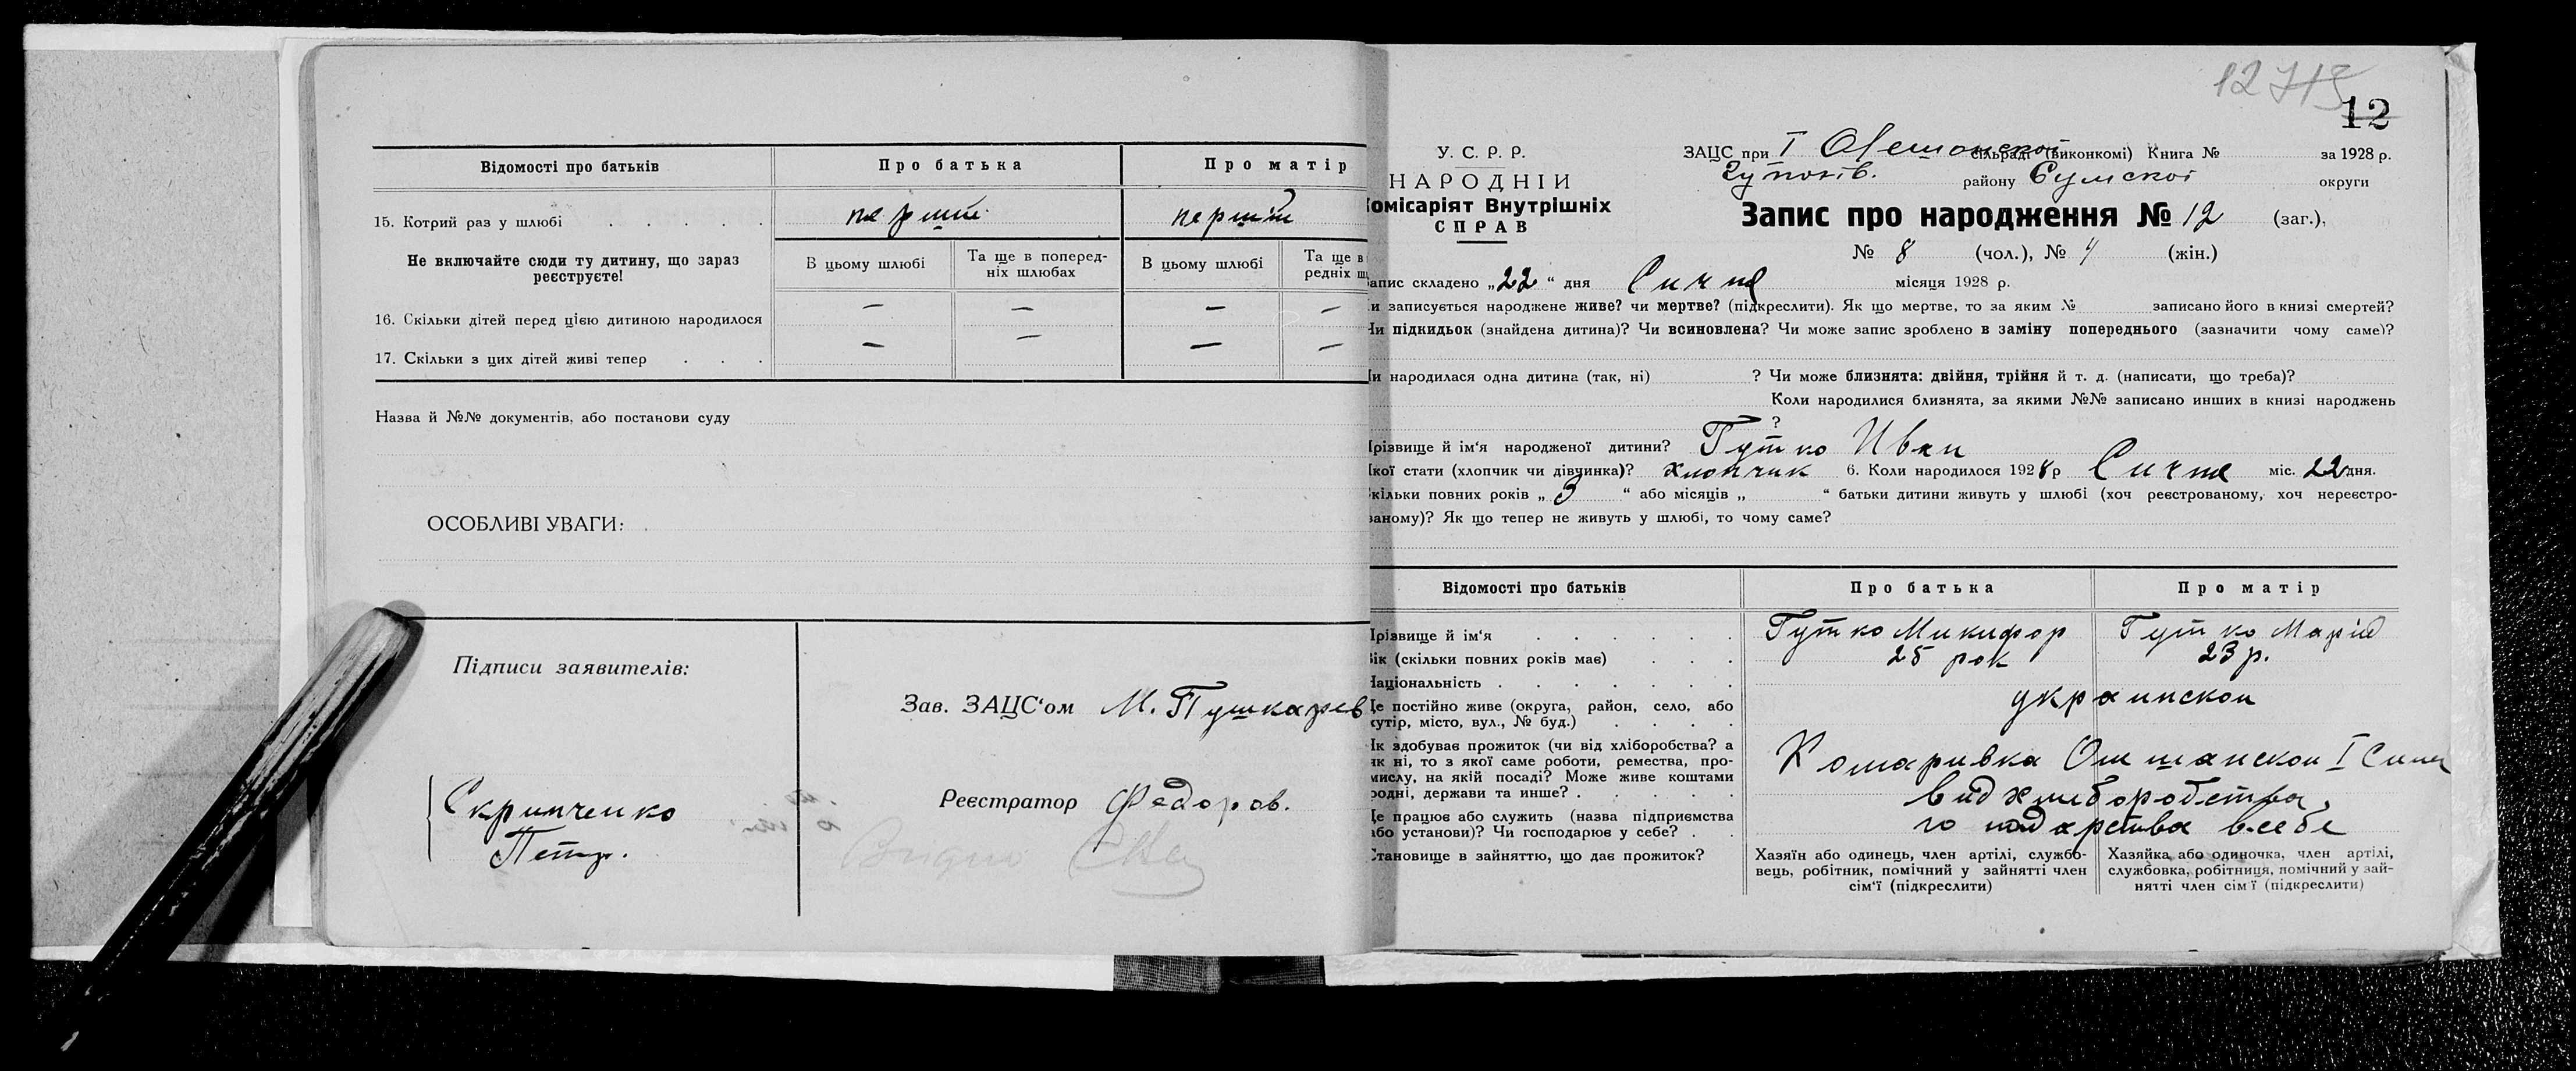 Відомості про батьків
Про батька
Про матір
15. Котрий раз у шлюбі
перший
перший
Не включайте сюди ту дитину, що зараз
реєструєте!
В цьому шлюбі
Та ще в поперед-
ніх шлюбах
В цьому шлюбі
Та ще в
редніх
16. Скільки дітей перед цією дитиною народилося
— — — —
17. Скільки з цих дітей живі тепер
— — — —
Назва й №№ документів, або постанови суду
ОСОБЛИВІ УВАГИ:
Підписи заявителів:
Скрипченко
Петр.
Зав. ЗАЦС‘ом М. Пушкарев
Реєстратор Федоров.
12
12
У. С. Р. Р.
НАРОДНІЙ
Комісаріят Внутрішніх
СПРАВ
ЗАЦС при І сільраді (виконкомі) Книга № за 1928 р.
району Сумскої округи
Запис про народження № 12 (заг.),
№ 8 (чол.), № 4 (жін.)
апис складено „22“ дня Сичня місяця 1928 р.
и записується народжене живе? чи мертве? (підкреслити). Як що мертве, то за яким № записано його в книзі смертей?
Чи підкидьок (знайдена дитина)? Чи всиновлена? Чи може запис зроблено в заміну попереднього (зазначити чому саме)?
и народилася одна дитина (так, ні) ? Чи може близнята: двійня, трійня й т. д. (написати, що треба)?
Коли народилися близнята, за якими №№ записано инших в книзі народжень
?
різвище й ім‘я народженої дитини? Гутко Иван
кої стати (хлопчик чи дівчинка)? хлопчик 6. Коли народилося 1928 р Сичня міс. 22 дня.
кільки повних років „3“ або місяців „ “ батьки дитини живуть у шлюбі (хоч реєстрованому, хоч нереєстро-
аному)? Як що тепер не живуть у шлюбі, то чому саме?
Відомості про батьків
Про батька
Про матір
різвище й ім‘я
Гутко Микифор
Гутко Марія
ік (скільки повних років має)
25 рок
23 р.
аціональність
украинскои
е постійно живе (округа, район, село, або
утір, місто, вул., № буд.)
Комаривка
як здобуває прожиток (чи від хліборобства? а
як ні, то з якої саме роботи, ремества, про-
мислу, на якій посаді? Може живе коштами
родні, держави та инше?
вид хлиборобства,
е працює або служить (назва підприємства
або установи)? Чи господарює у себе?
в себе
тановище в зайняттю, що дає прожиток?
Хазяїн або одинець, член артілі, службо-
вець, робітник, помічний у зайнятті член
сім‘ї (підкреслити)
Хазяйка або одиночка, член артілі,
службовка, робітниця, помічний у зай-
нятті член сім‘ї (підкреслити)